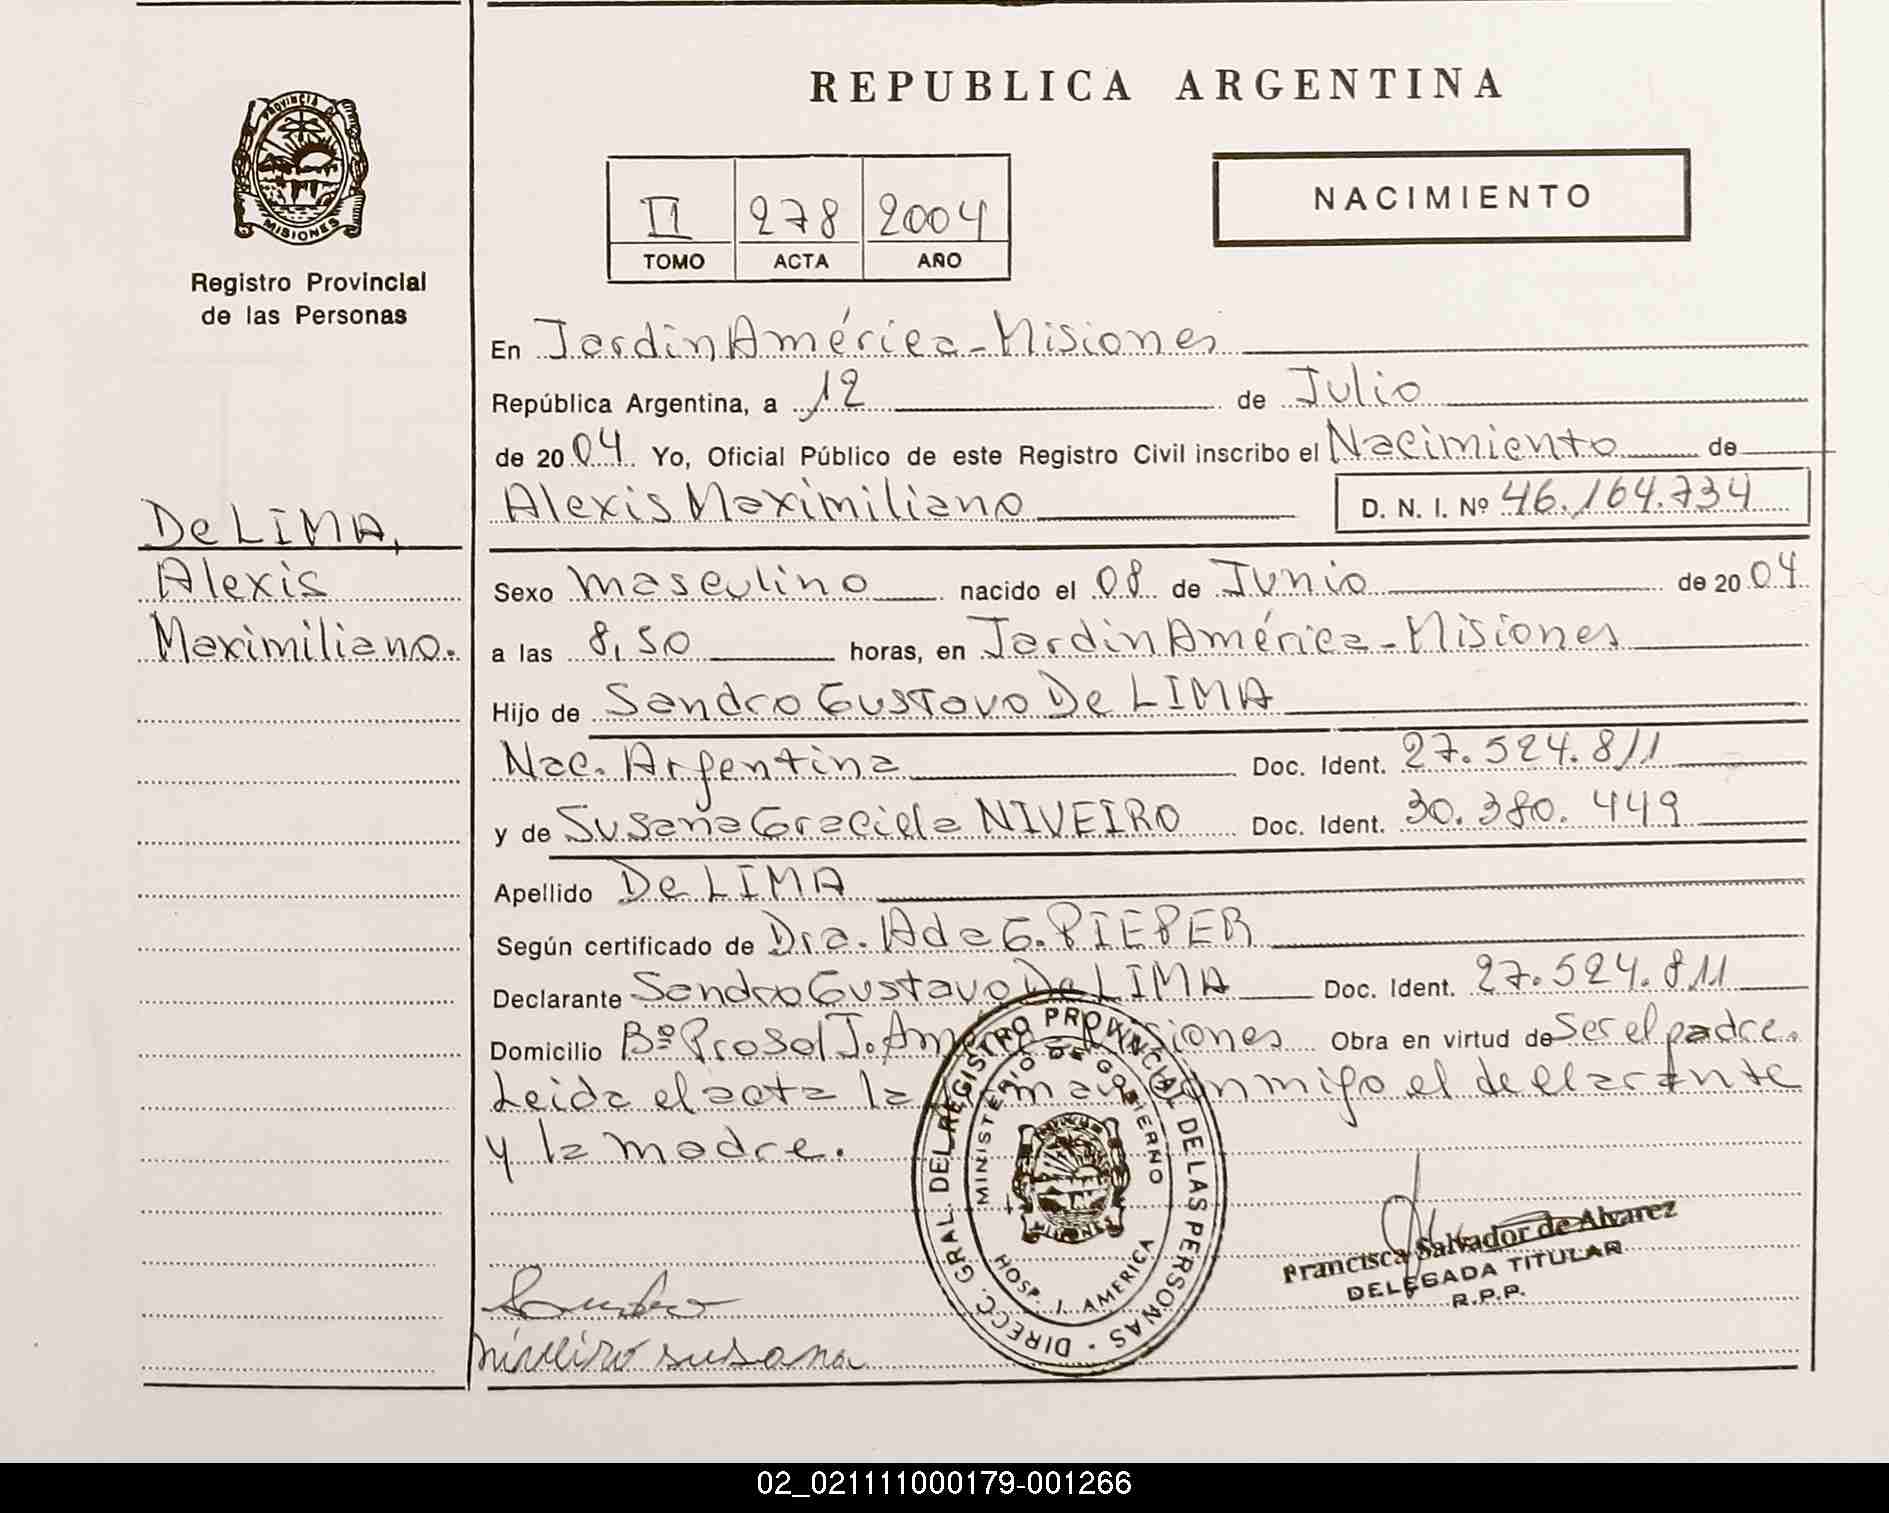 REPUBLICA ARGENTINA
PROVINCIA DE
MISIONES
Registro Provincial
de las Personas
II 278 2004
TOMO ACTA AÑO
NACIMIENTO
En Jardín América - Misiones
República Argentina, a 12 de Julio
de 2004 Yo, Oficial Público de este Registro Civil inscribo el Nacimiento de
Alexis Maximiliano D. N. I. Nº 46.164.734
De LIMA,
Alexis
Maximiliano.
Sexo masculino nacido el 08 de Junio de 2004
a las 8,50 horas, en Jardín América - Misiones
Hijo de Sandro Gustavo De LIMA
Nac. Argentina Doc. Ident. 27.524.811
y de Susana Graciela NIVEIRO Doc. Ident. 30.380.449
Apellido De LIMA
Según certificado de Dra. Ada G. PIEPER
Declarante Sandro Gustavo De LIMA Doc. Ident. 27.524.811
Domicilio Bº ProSol J. Am Misiones Obra en virtud de Ser el padre.
Leida el acta la firman conmigo el declarante
y la madre.
DIRECC. GRAL. DEL REGISTRO PROVINCIAL DE LAS PERSONAS
MINISTERIO DE GOBIERNO
HOSP. J. AMERICA
Francisca Salvador de Alvarez
DELEGADA TITULAR
R.P.P.
Niveiro susana
02_021111000179-001266